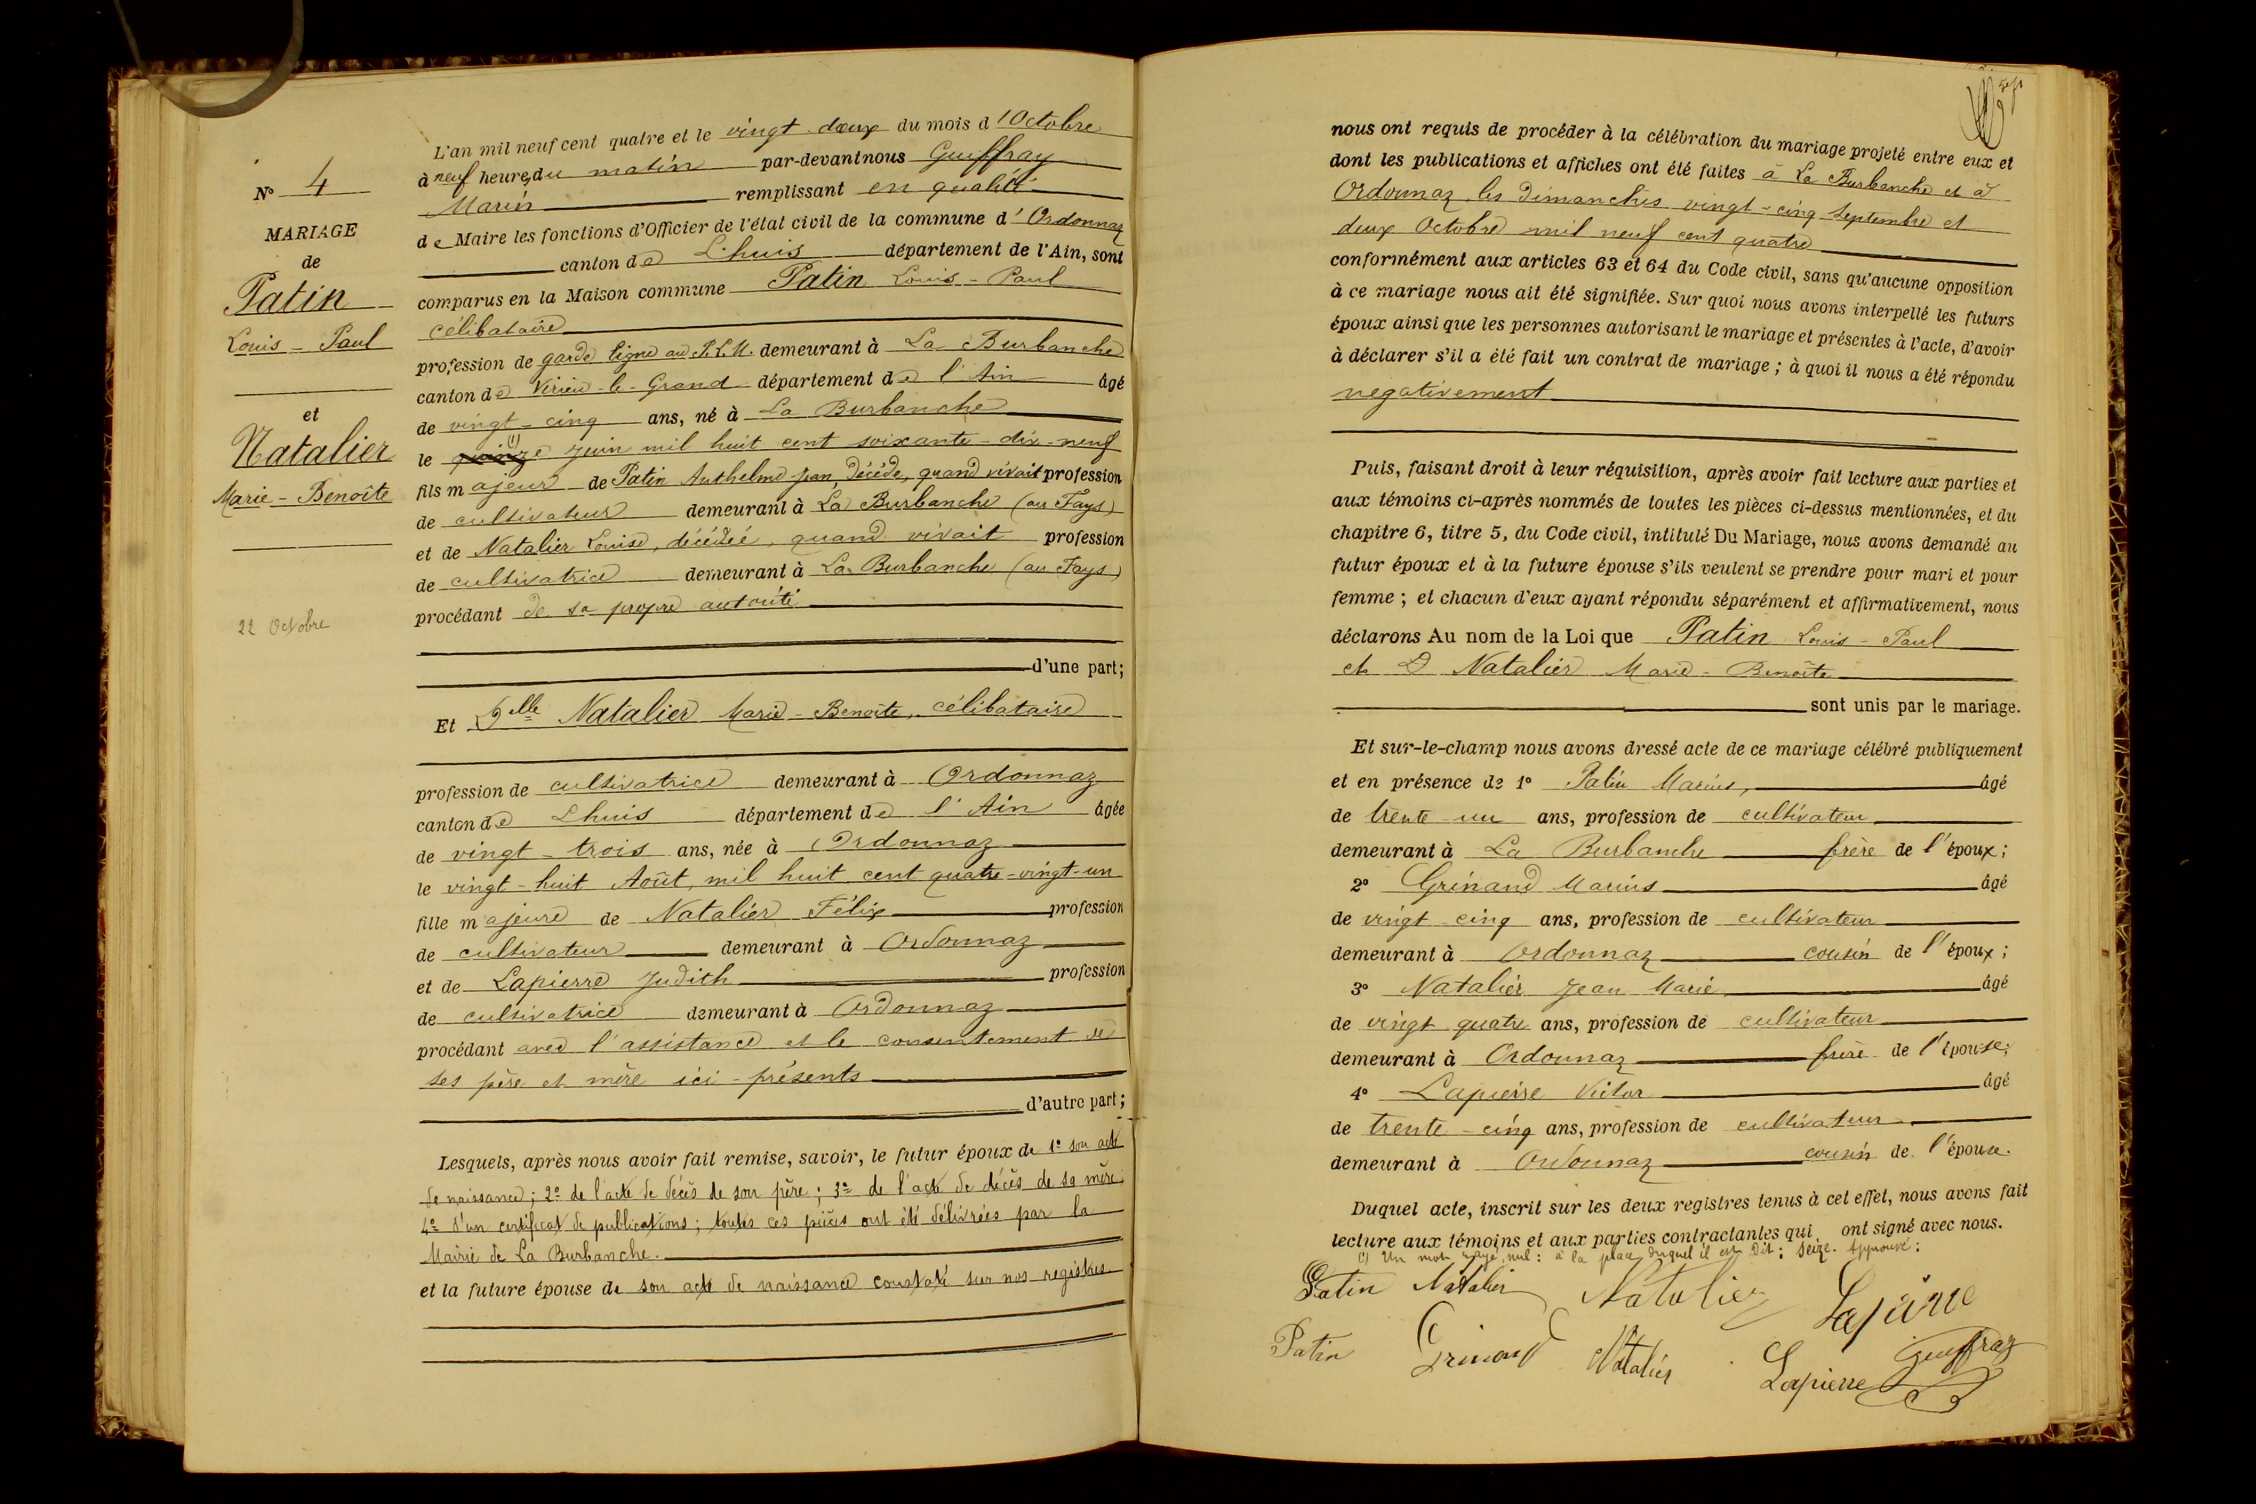 N° 4
MARIAGE
de
Patin
Louis - Paul
et
Natalier
Marie - Benoîte
22 Octobre
L'an mil neuf cent quatre et le vingt deux du mois d'Octobre
à neuf heures du matin par-devant nous Guiffray
Marin remplissant en qualité
de Maire les fonctions d'Officier de l'état civil de la commune d'Ordonnaz
canton de Lhuis département de l'Ain, sont
comparus en la Maison commune Patin Louis - Paul
célibataire
profession de garde ligne au P.L.M. demeurant à La Burbanche
canton de Virieu-le-Grand département de l'Ain âgé
de vingt-cinq ans, né à La Burbanche
le quinze (1) Juin mil huit cent soixante-dix-neuf
fils majeur de Patin Anthelme Jean, décédé, quand vivait profession
de cultivateur demeurant à La Burbanche (au Fays)
et de Natalier Louise, décédée, quand vivait profession
de cultivatrice demeurant à La Burbanche (au Fays)
procédant de sa propre autorité
d'une part;
Et Delle Natalier Marie-Benoîte, célibataire
profession de cultivatrice demeurant à Ordonnaz
canton de Lhuis département de l'Ain âgée
de vingt-trois ans, née à Ordonnaz
le vingt-huit Août, mil huit cent quatre-vingt-un
fille majeure de Natalier Félix profession
de cultivateur demeurant à Ordonnaz
et de Lapierre Judith profession
de cultivatrice demeurant à Ordonnaz
procédant avec l'assistance et le consentement de
ses père et mère ici-présents
d'autre part;
Lesquels, après nous avoir fait remise, savoir, le futur époux de 1° son acte
de naissance; 2° de l'acte de décès de son père; 3° de l'acte de décès de sa mère;
4° d'un certificat de publications; toutes ces pièces ont été délivrées par la
Mairie de La Burbanche.
et la future épouse de son acte de naissance constaté sur nos registres
nous ont requis de procéder à la célébration du mariage projeté entre eux et
dont les publications et affiches ont été faites à La Burbanche et à
Ordonnaz les dimanches vingt-cinq Septembre et
deux Octobre mil neuf cent quatre
conformément aux articles 63 et 64 du Code civil, sans qu'aucune opposition
à ce mariage nous ait été signifiée. Sur quoi nous avons interpellé les futurs
époux ainsi que les personnes autorisant le mariage et présentes à l'acte, d'avoir
à déclarer s'il a été fait un contrat de mariage; à quoi il nous a été répondu
negativement
Puis, faisant droit à leur réquisition, après avoir fait lecture aux parties et
aux témoins ci-après nommés de toutes les pièces ci-dessus mentionnées, et du
chapitre 6, titre 5, du Code civil, intitulé Du Mariage, nous avons demandé au
futur époux et à la future épouse s'ils veulent se prendre pour mari et pour
femme; et chacun d'eux ayant répondu séparément et affirmativement, nous
déclarons Au nom de la Loi que Patin Louis-Paul
et D Natalier Marie-Benoîte
sont unis par le mariage.
Et sur-le-champ nous avons dressé acte de ce mariage célébré publiquement
et en présence de 1° Patin Marius, âgé
de trente-un ans, profession de cultivateur
demeurant à La Burbanche frère de l'époux;
2° Grinand Marius âgé
de vingt-cinq ans, profession de cultivateur
demeurant à Ordonnaz cousin de l'époux;
3° Natalier Jean Marie âgé
de vingt quatre ans, profession de cultivateur
demeurant à Ordonnaz frère de l'épouse;
4° Lapierre Victor âgé
de trente-cinq ans, profession de cultivateur
demeurant à Ordonnaz cousin de l'épouse.
Duquel acte, inscrit sur les deux registres tenus à cet effet, nous avons fait
lecture aux témoins et aux parties contractantes qui ont signé avec nous.
(1) Un mot rayé, nul: à la place duquel il est dit: seize. Approuvé:
Patin Natalier Natalier Lapierre
Patin Grinand Natalier Lapierre Guiffray